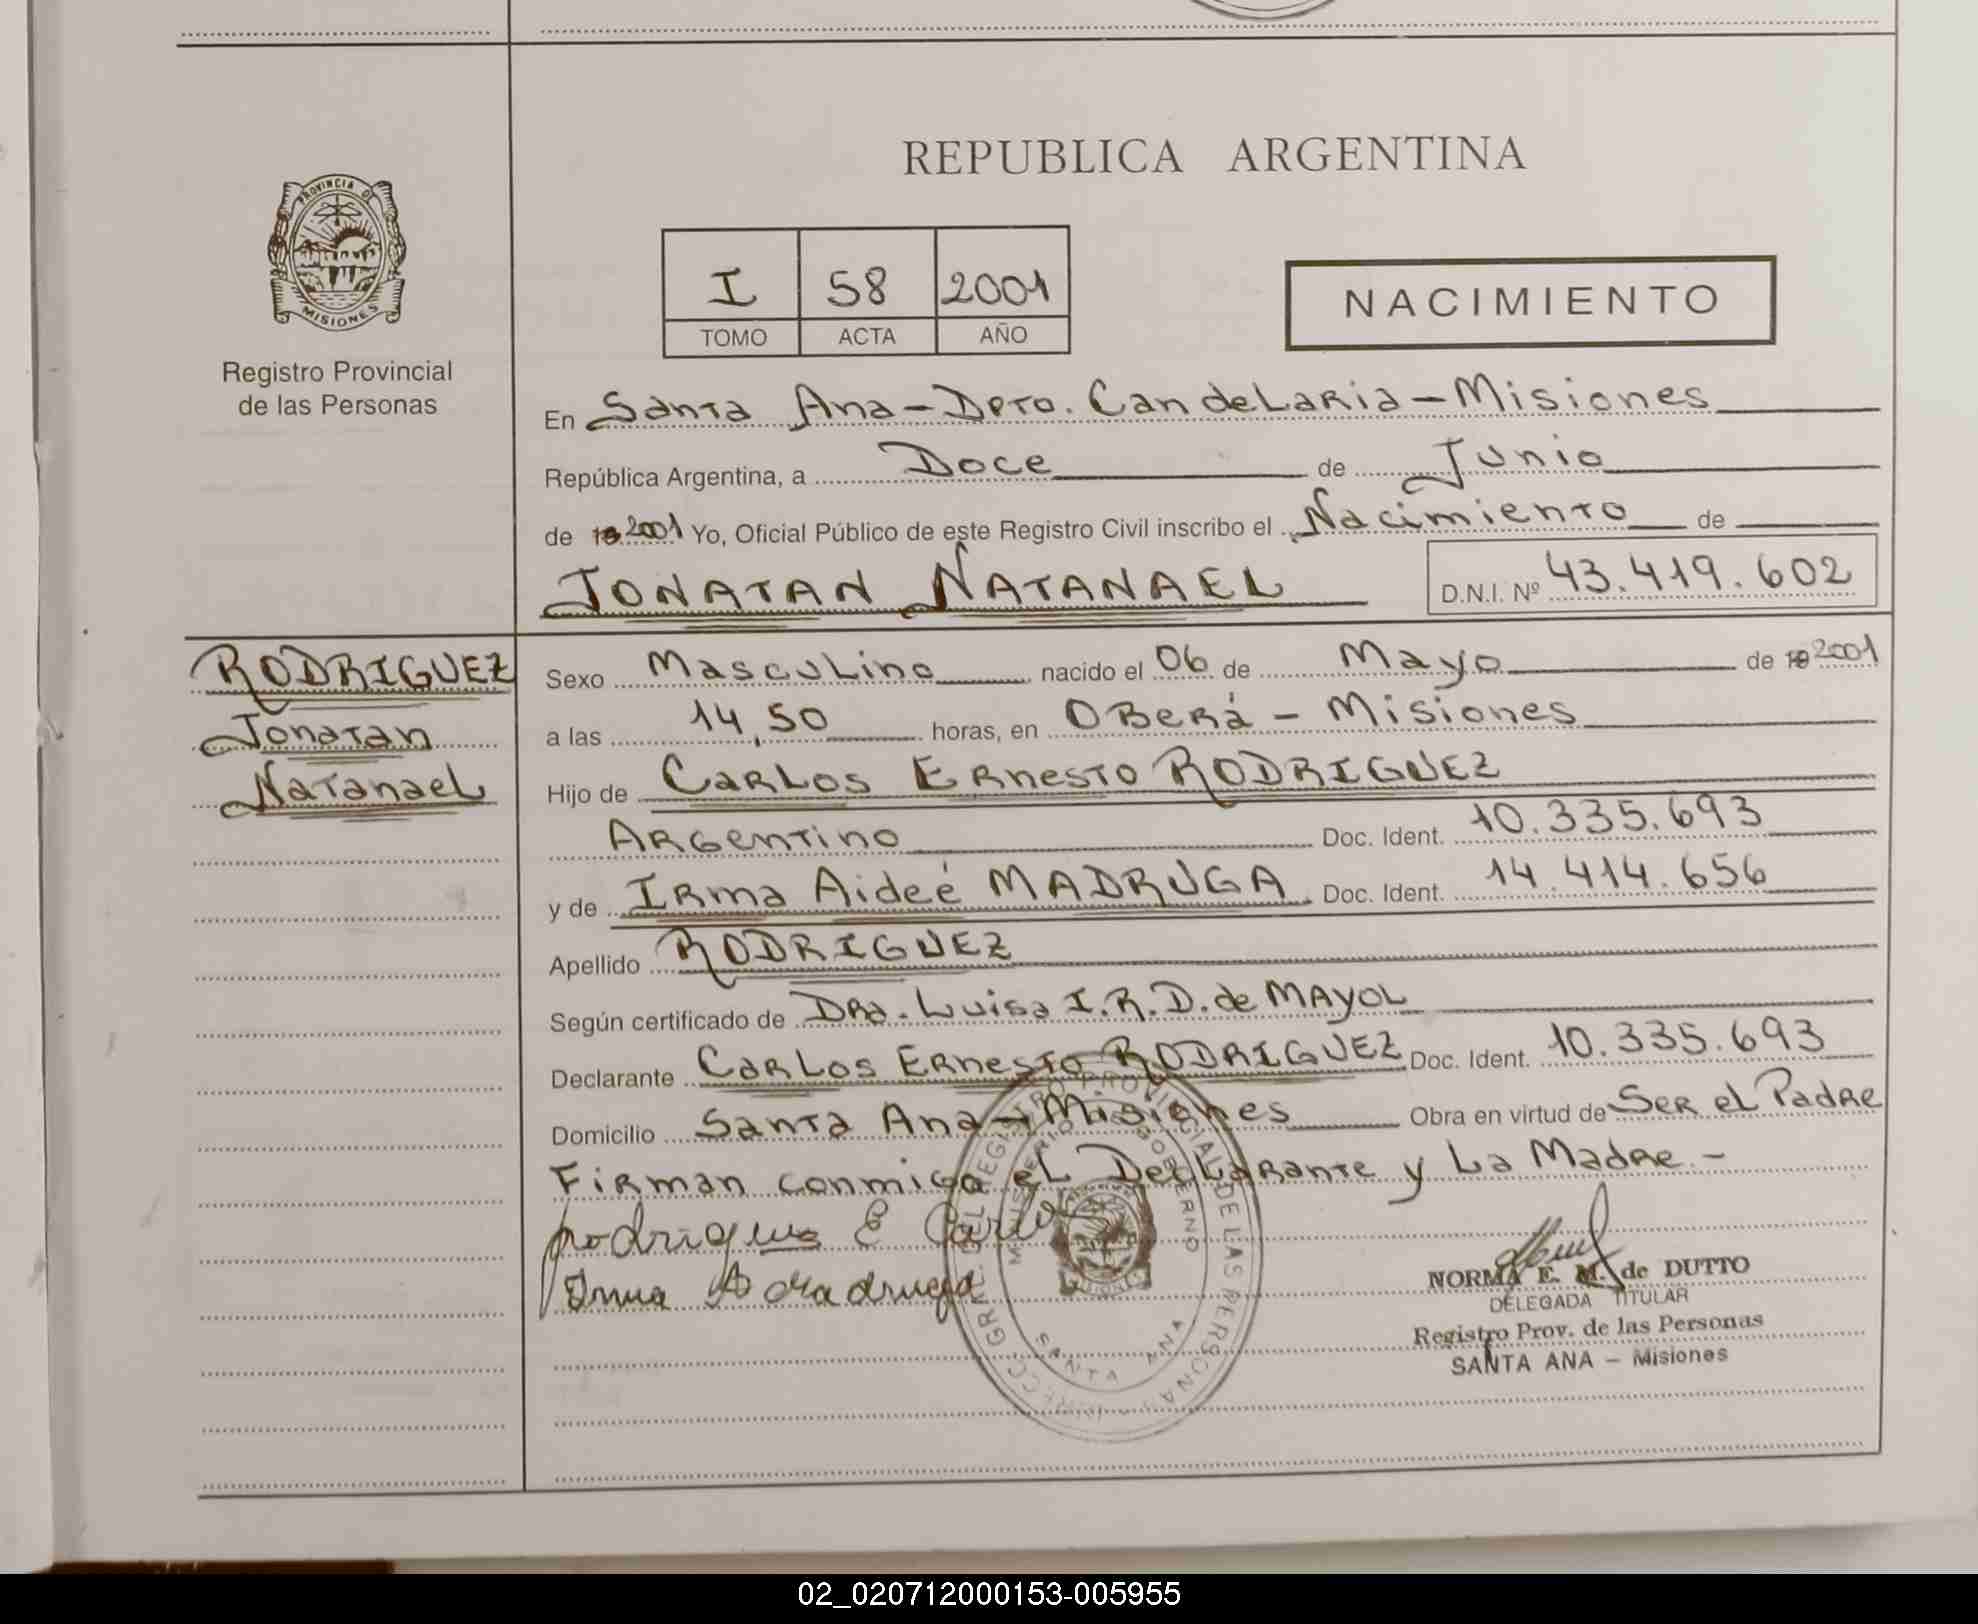 PROVINCIA DE
MISIONES
Registro Provincial
de las Personas
REPUBLICA ARGENTINA
I 58 2001
TOMO ACTA AÑO
NACIMIENTO
En Santa Ana - Dpto. Candelaria - Misiones
República Argentina, a Doce de Junio
de 19 2001 Yo, Oficial Público de este Registro Civil inscribo el Nacimiento de
JONATAN NATANAEL
D.N.I. Nº 43.419.602
RODRIGUEZ
Jonatan
Natanael
Sexo Masculino nacido el 06 de Mayo de 19 2001
a las 14,50 horas, en Oberá - Misiones
Hijo de Carlos Ernesto RODRIGUEZ
Argentino Doc. Ident. 10.335.693
y de Irma Aideé MADRUGA Doc. Ident. 14.414.656
Apellido RODRIGUEZ
Según certificado de Dra. Luisa I.R.D. de MAYOL
Declarante Carlos Ernesto RODRIGUEZ Doc. Ident. 10.335.693
Domicilio Santa Ana - Misiones Obra en virtud de Ser el Padre
Firman conmigo el Declarante y La Madre -
rodrigues E Carlos
Irma A Madruga
NORMA E. M. de DUTTO
DELEGADA TITULAR
Registro Prov. de las Personas
SANTA ANA - Misiones
DIRECC. GRAL. DEL REGISTRO PROVINCIAL DE LAS PERSONAS
MINISTERIO DE GOBIERNO
SANTA ANA
02_020712000153-005955